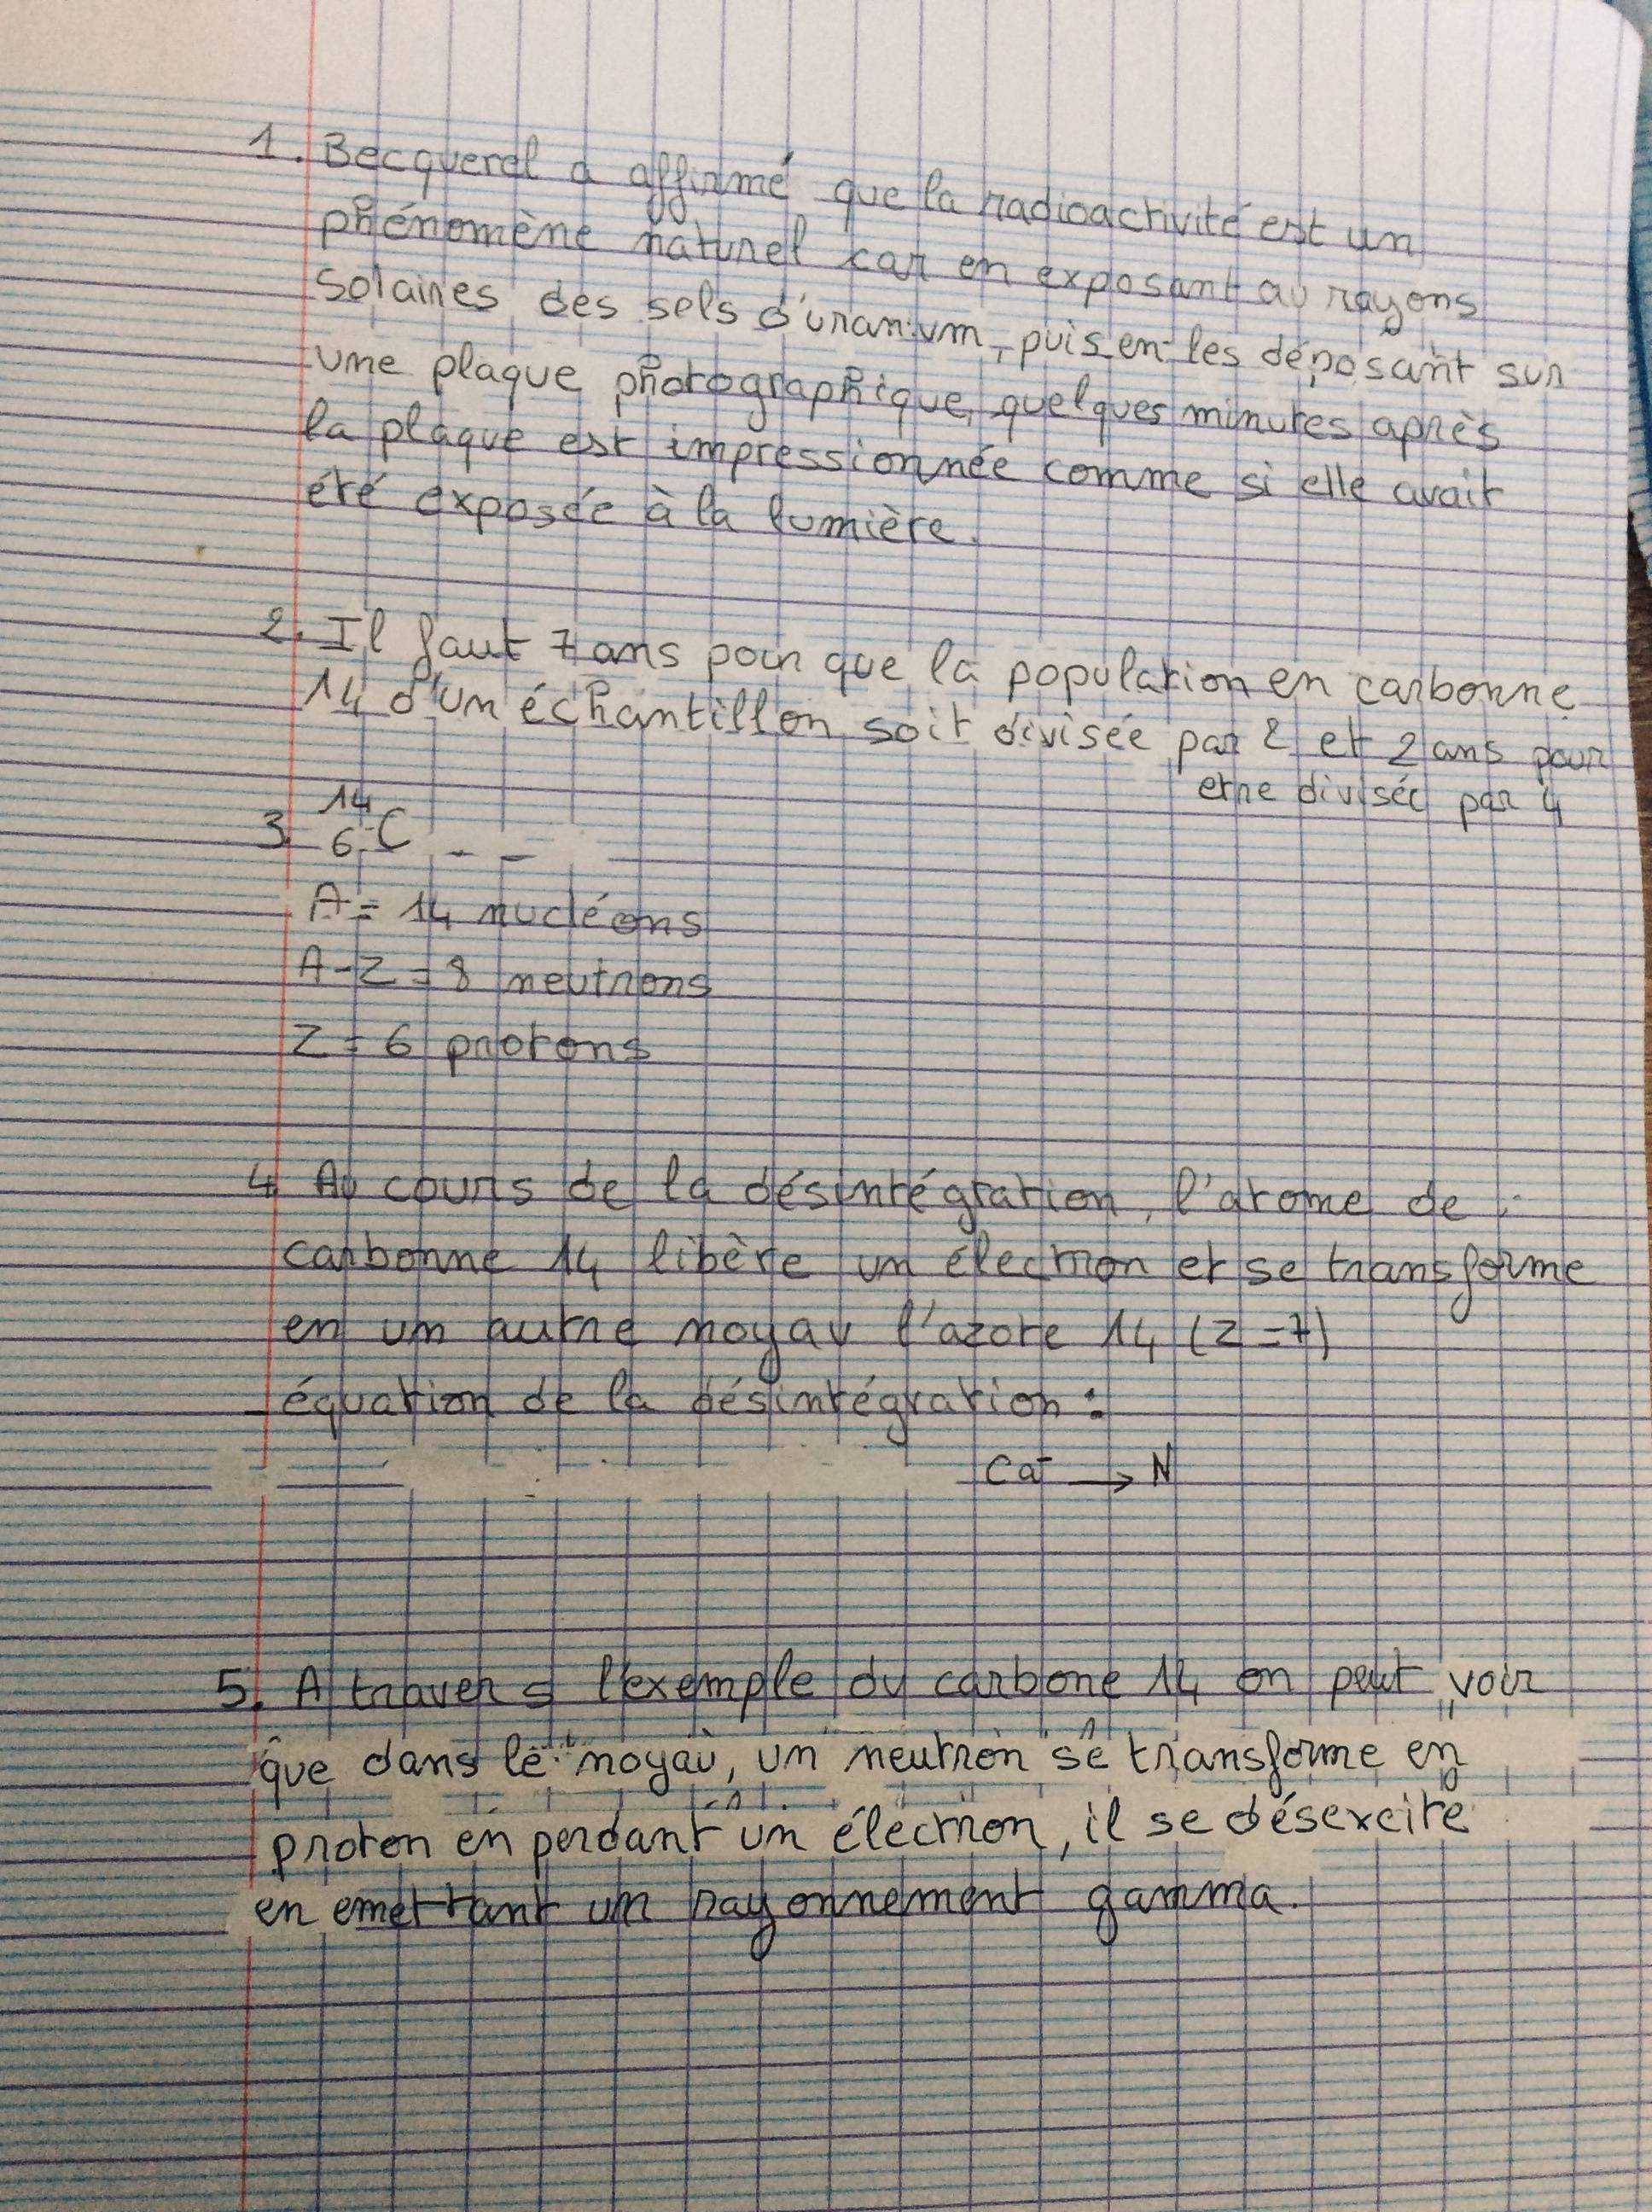 1. Becquerel a affirmé que la radioactivité est un
phénomène naturel car en exposant au rayons
solaires des sels d'uranium, puis en les déposant sur
une plaque photographique, quelques minutes après
la plaque est impressionnée comme si elle avait
été exposée à la lumière.
2. Il faut 7 ans pour que la population en carbonne
14 d'un échantillon soit divisée par 2 et 2 ans pour
etre divisée par 4
3. ¹⁴₆C
A = 14 nucléons
A-Z = 8 neutrons
Z = 6 protons
4. Au cours de la désintégration, l'atome de
carbonne 14 libère un électron et se transforme
en un autre noyau l'azote 14 (Z = 7)
équation de la désintégration :
Ca → N
5. A travers l'exemple du carbone 14 on peut voir
que dans le noyau, un neutron se transforme en
proton en perdant un électron, il se désexcite
en emettant un rayonnement gamma.